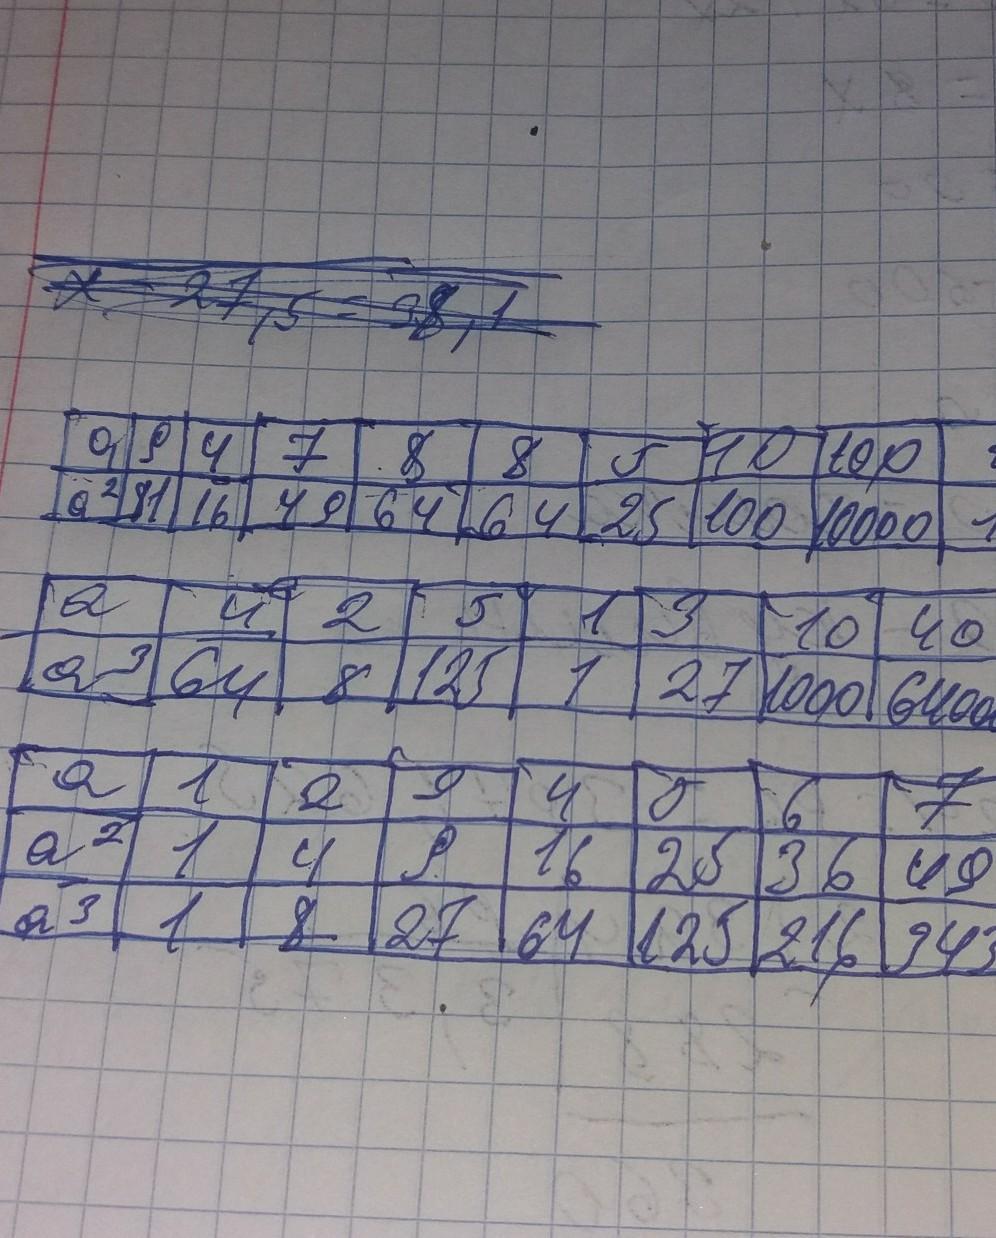 x - 27,5 = 38,1
a 9 4 7 8 8 5 10 100
a² 81 16 49 64 64 25 100 10000 1
a 4 2 5 1 3 10 40
a³ 64 8 125 1 27 1000 64000
a 1 2 3 4 5 6 7
a² 1 4 9 16 25 36 49
a³ 1 8 27 64 125 216 343